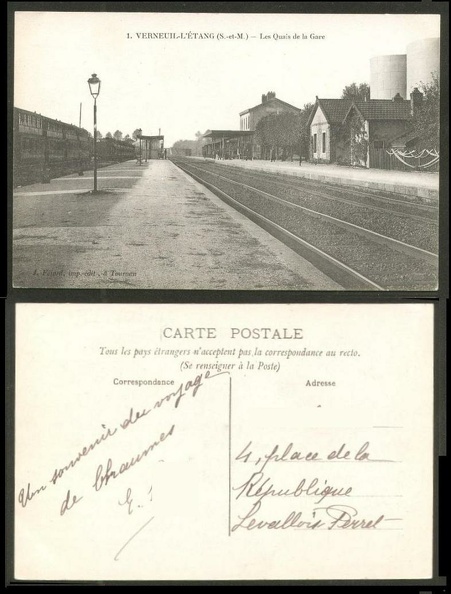 1. VERNEUIL-L'ÉTANG (S.-et-M.) — Les Quais de la Gare
imp.-édit., à Tournan
CARTE POSTALE
Tous les pays étrangers n'acceptent pas la correspondance au recto.
(Se renseigner à la Poste)
Correspondance
Adresse
Un souvenir du voyage
de Chaumes
4, place de la
République
Levallois Perret